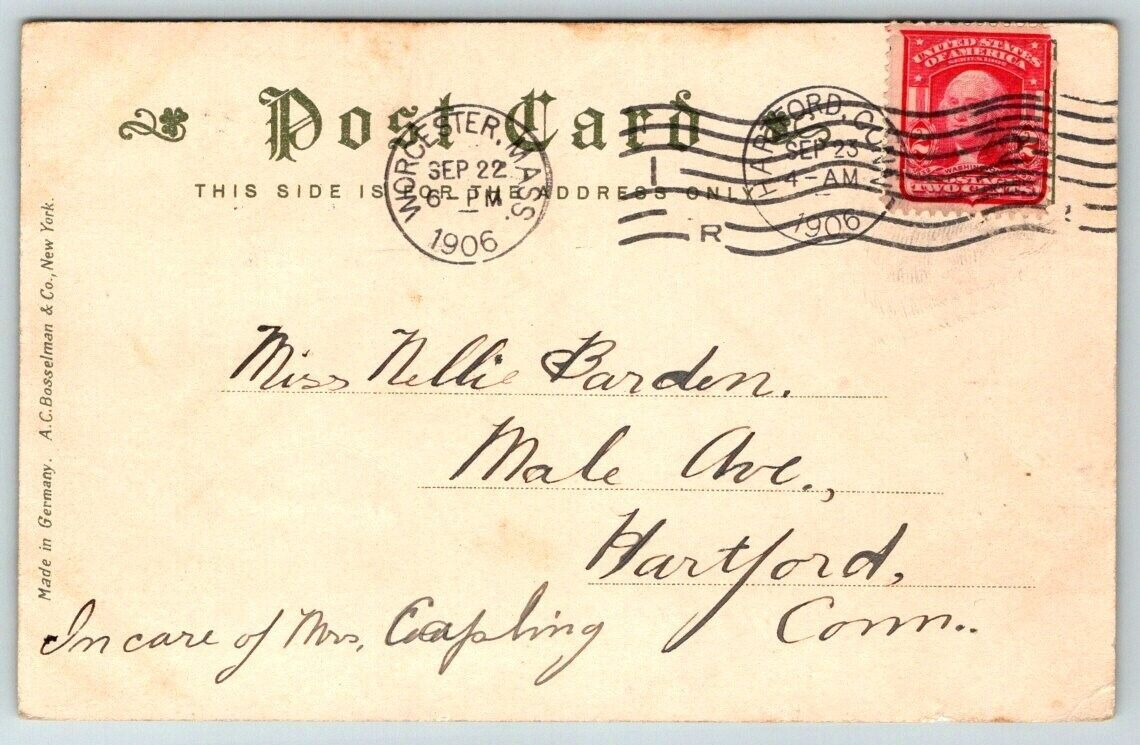 Post Card
THIS SIDE IS FOR THE ADDRESS ONLY
WORCESTER, MASS.
SEP 22
6- PM
1906
HARTFORD, CONN.
SEP 23
4-AM
1906
R
UNITED STATES
OF AMERICA
SERIES 1902
2 2
WASHINGTON
TWO CENTS
Miss Nellie Barden.
Male Ave.,
Hartford,
Conn..
In care of Mrs, Coapling
Made in Germany. A.C. Bosselman & Co., New York.